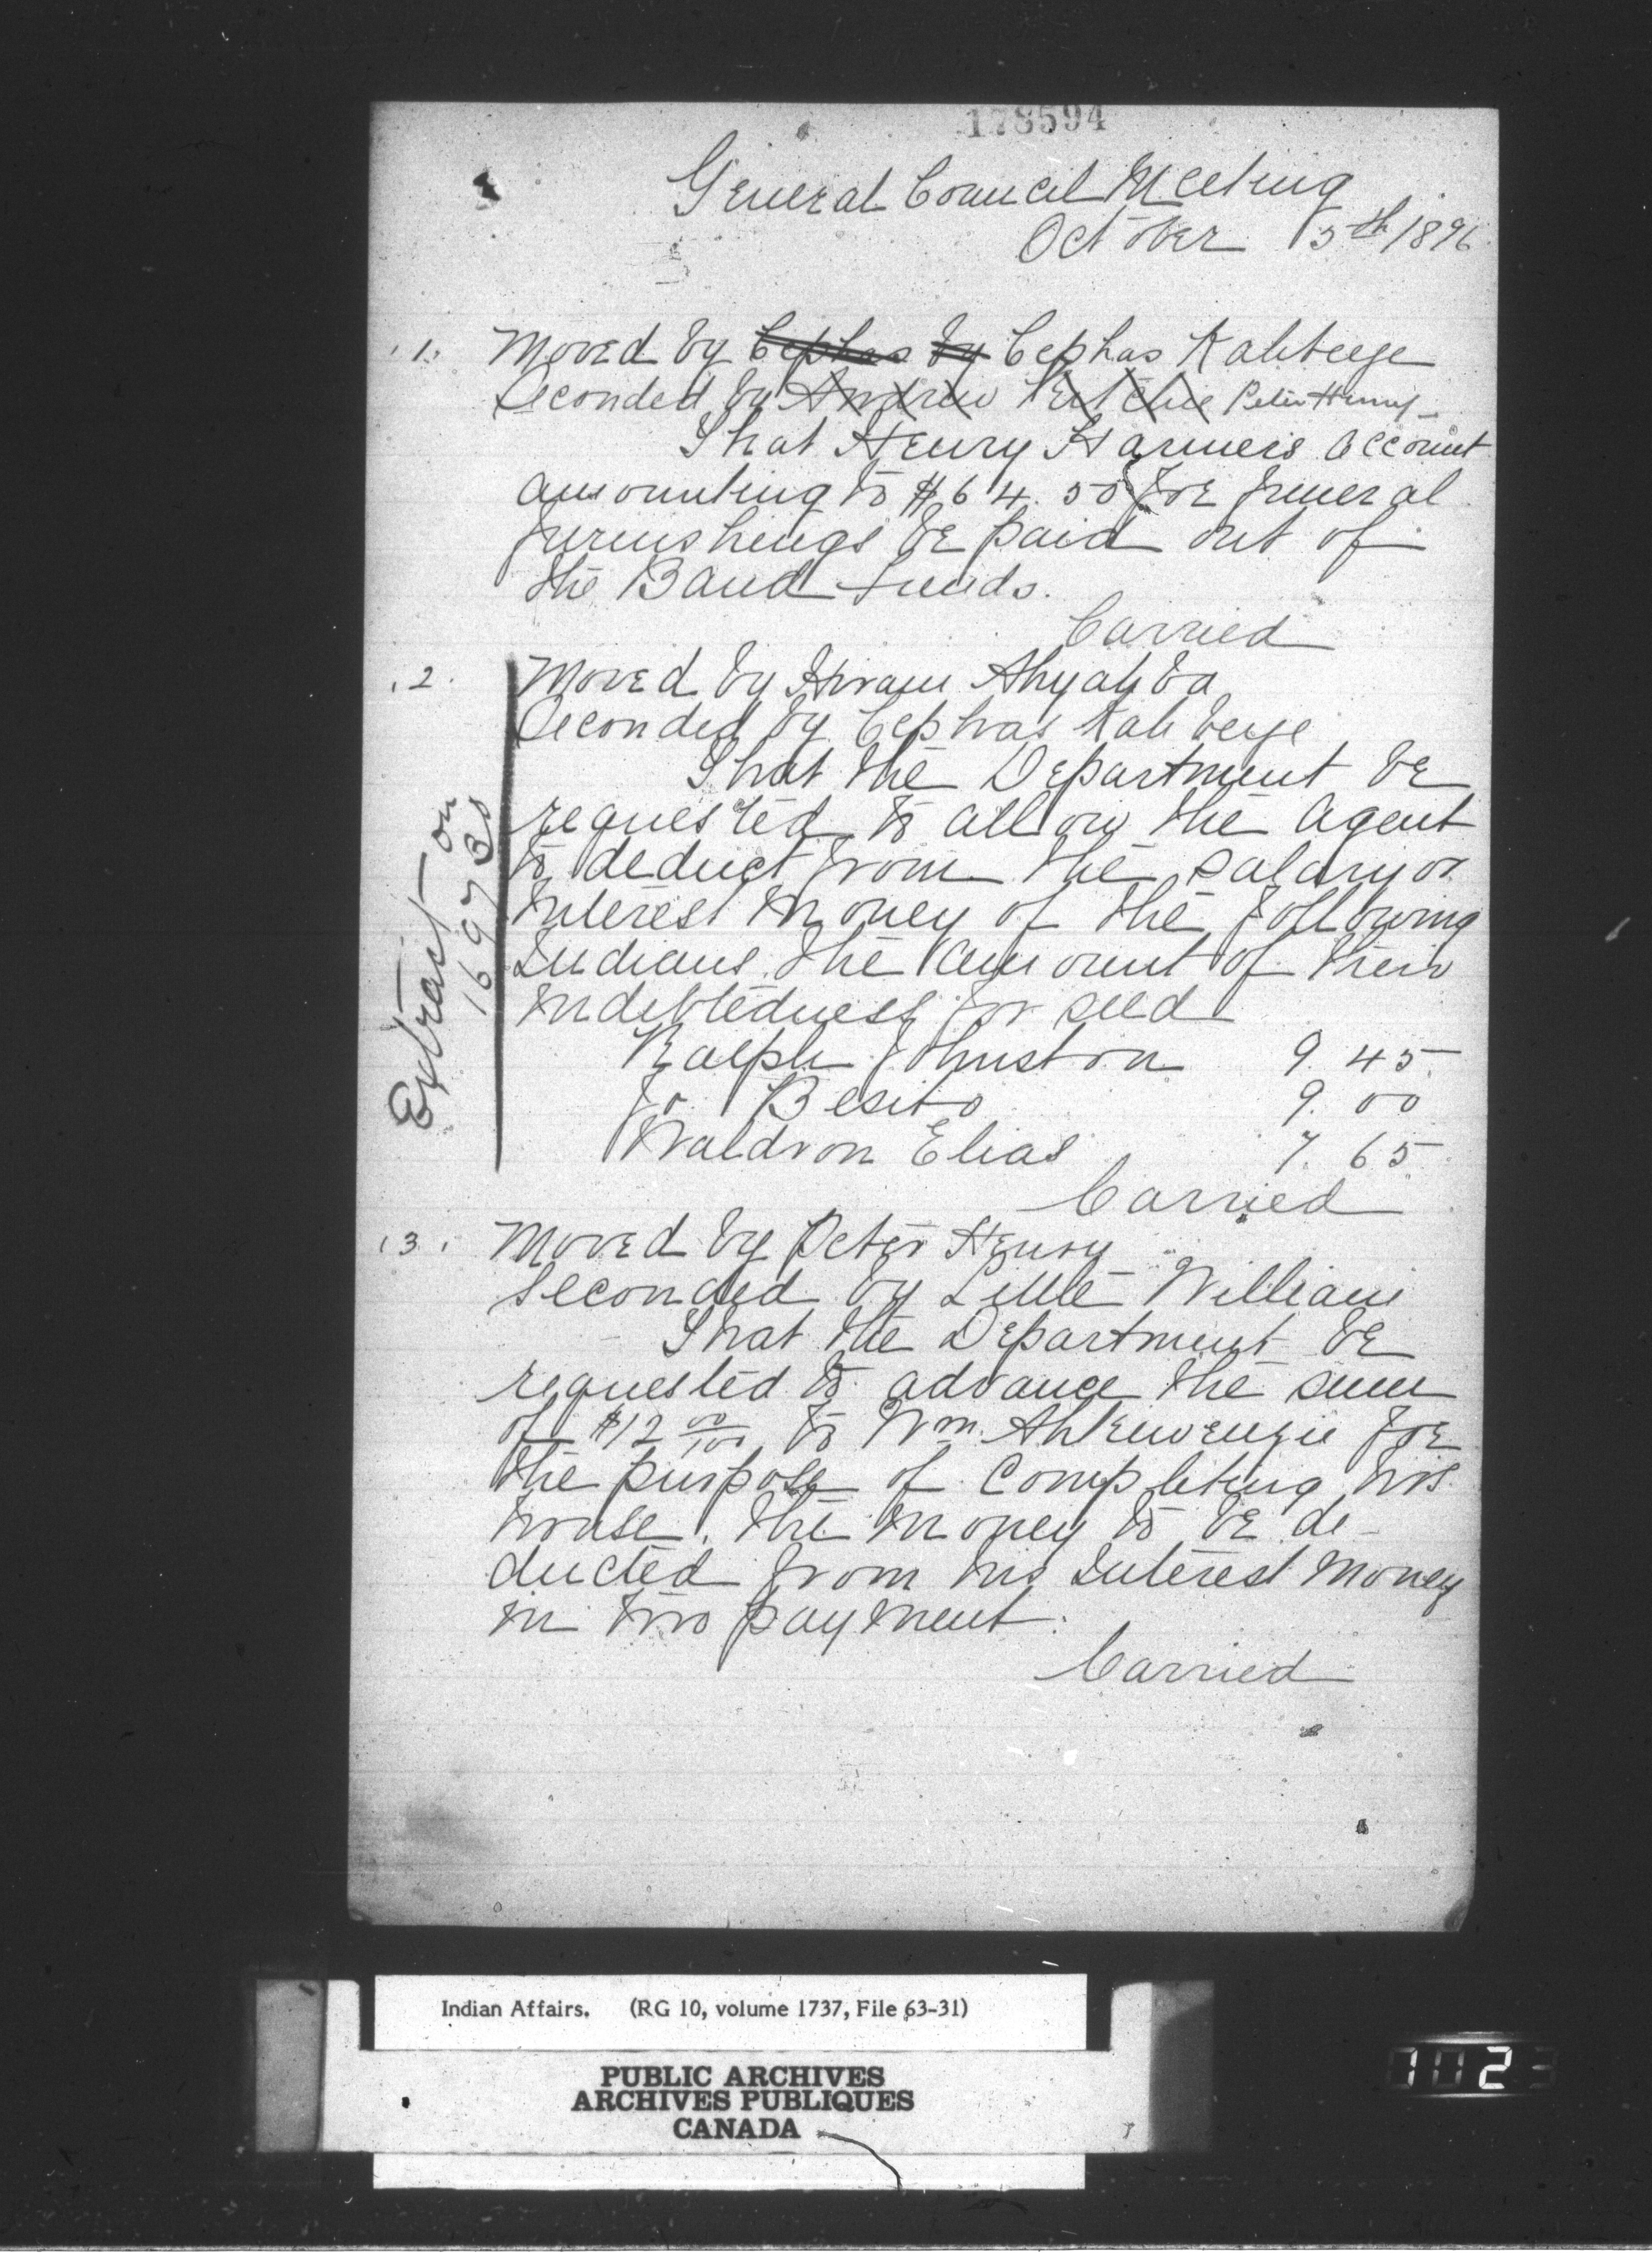 178594
General Council Meeting
October 5th 1896
1. Moved by Cephas by Cephas Kahbeege
Seconded by Andrew Peter Henry
That Henry Harmers account
amounting to $64.50 for funeral
furnishings be paid out of
the Band funds.
Carried
2. Moved by Hiram Ahyahba
Seconded by Cephas Kahbeege
That the Department be
requested to allow the Agent
to deduct from the Salary or
Interest Money of the following
Indians the amount of their
indebtedness for seed
Ralph Johnston 9.45
Jo Besito 9.00
Waldron Elias 7.65
Carried
Extract on
169730
3. Moved by Peter Henry
Seconded by Little William
That the Department be
requested to advance the sum
of $12 00/100 to Wm. for
the purpose of Completing his
house. the money to be de-
ducted from his Interest Money
in two payment.
Carried
Indian Affairs. (RG 10, volume 1737, File 63-31)
PUBLIC ARCHIVES
ARCHIVES PUBLIQUES
CANADA